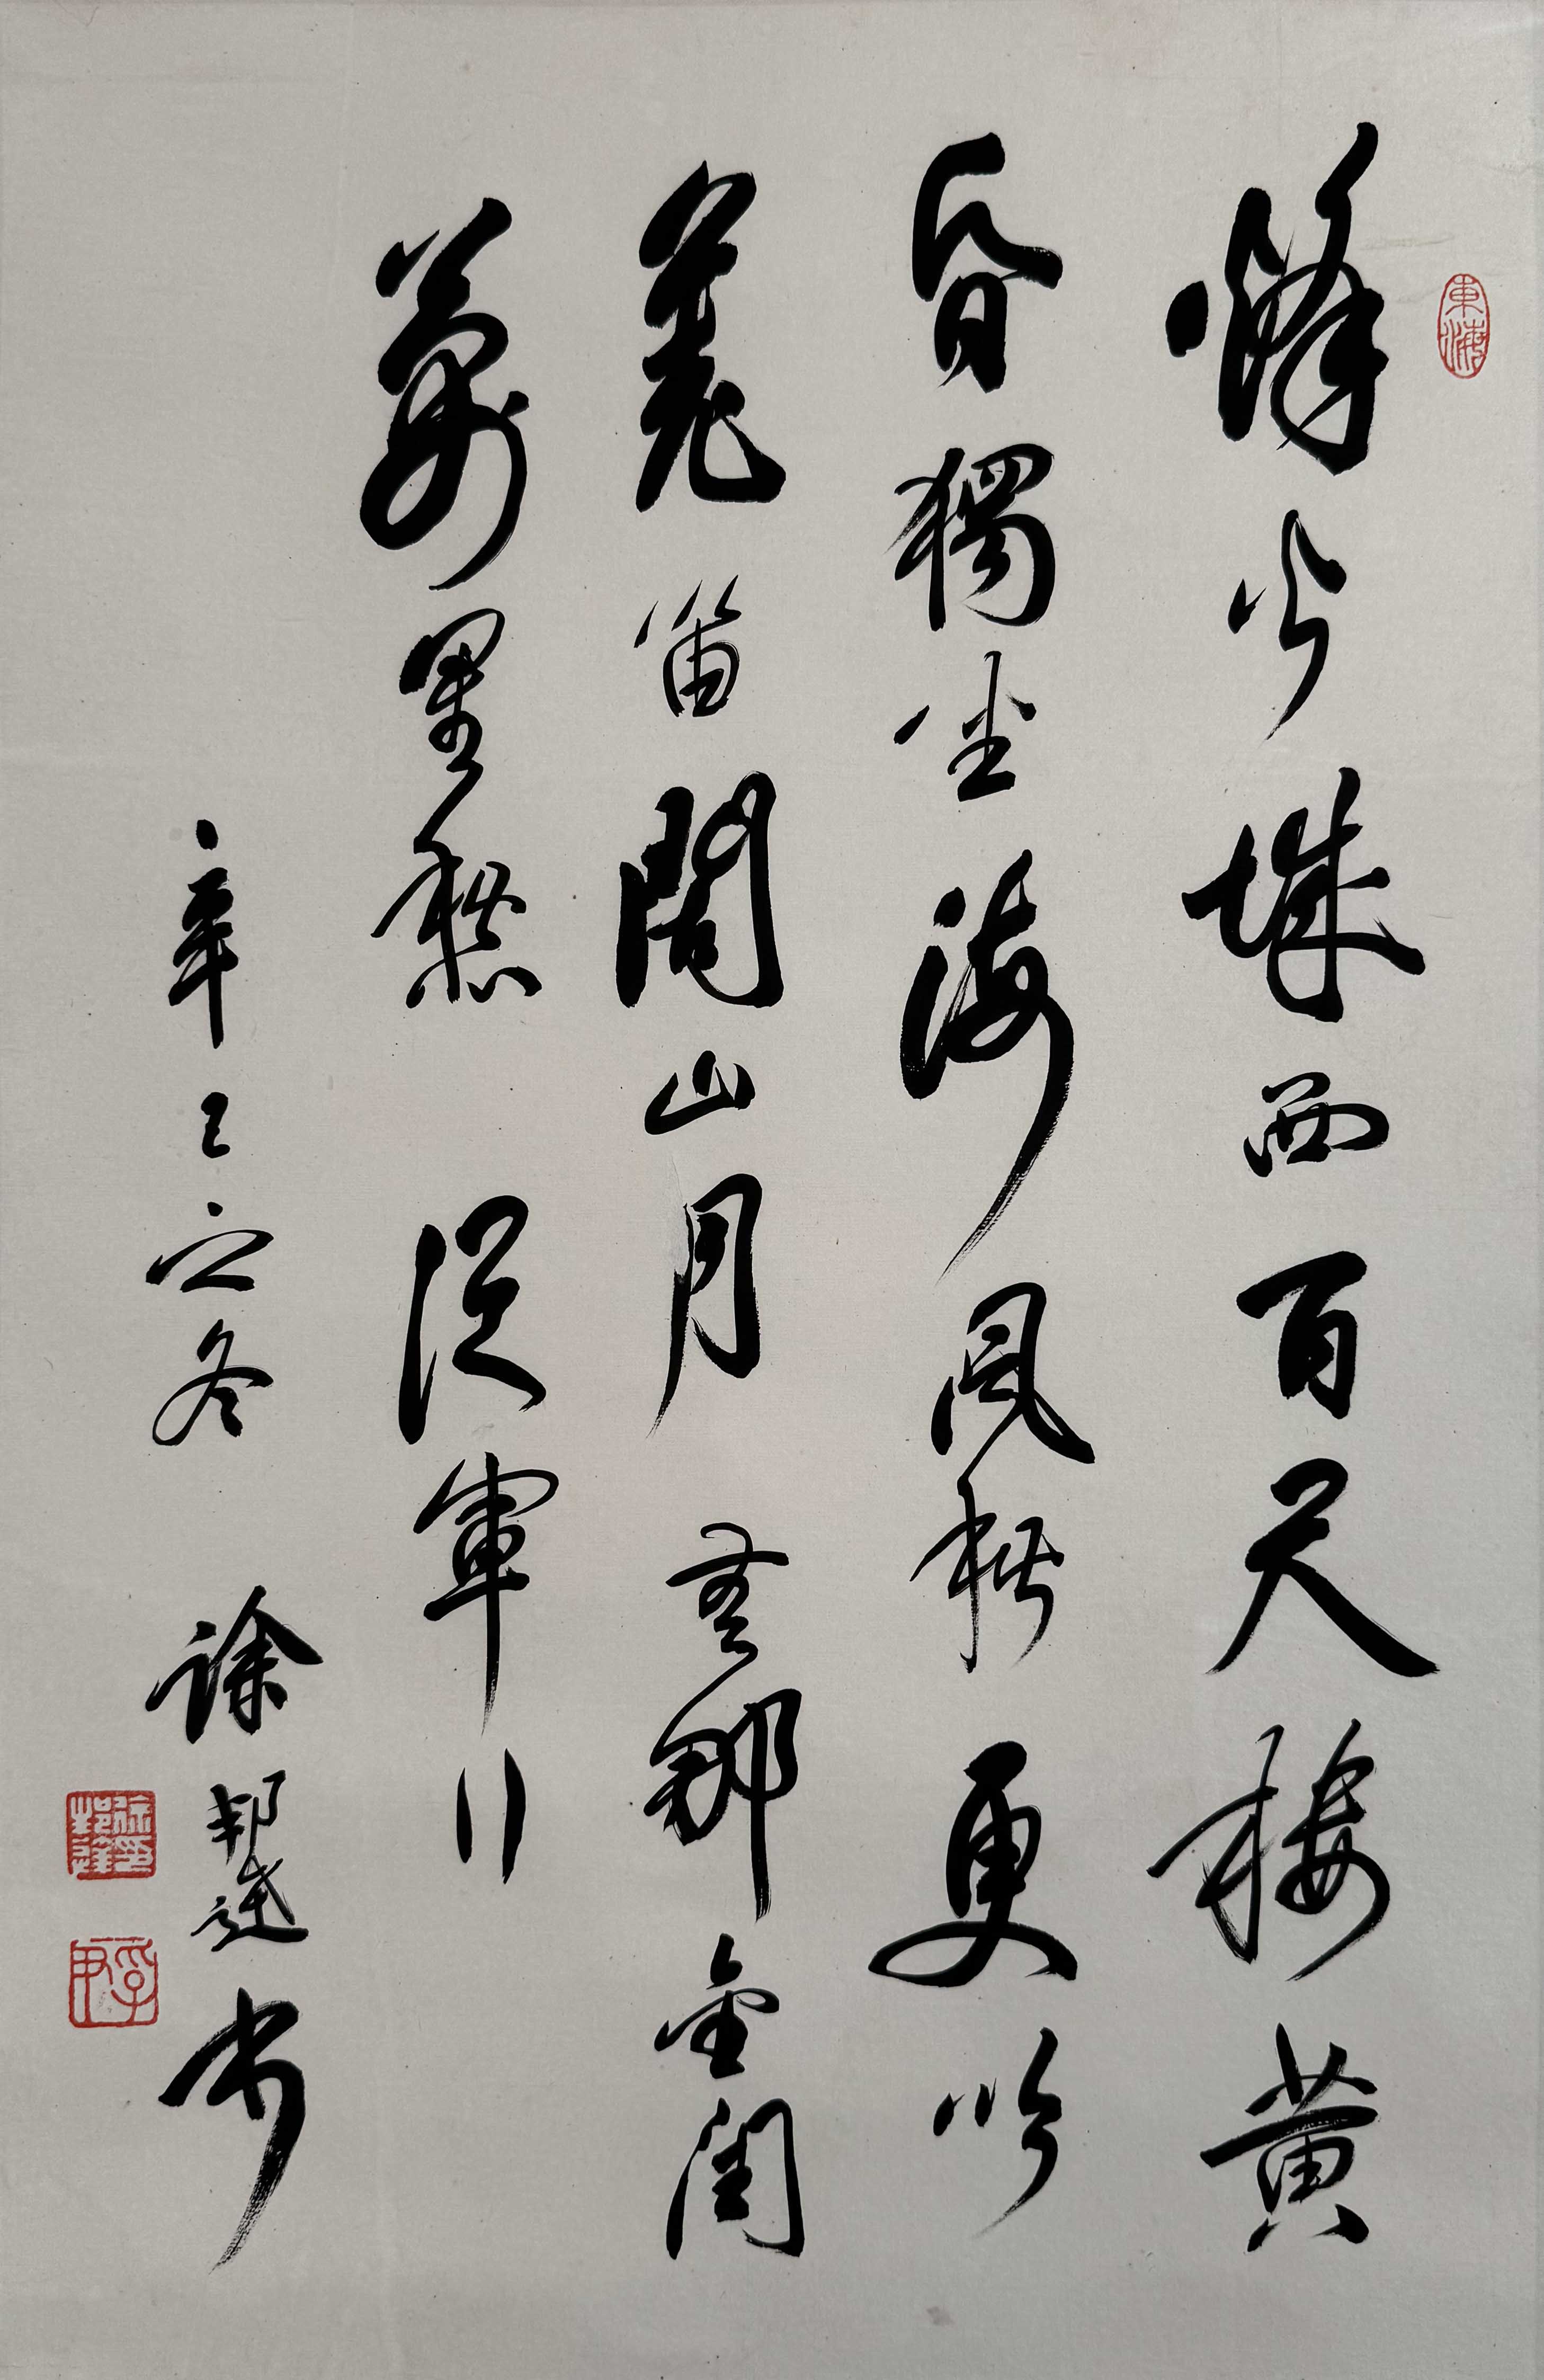 東海
烽火城西百尺樓黄
昏獨坐海風秋更吹
羌笛關山月無那金閨
萬里愁 從軍行
辛巳之冬 徐邦達書
徐邦達印
孚尹